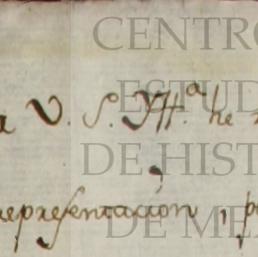 a V. S. Yll.ª he
representacion, p
CENTRO
ESTUD
DE HIST
DE ME